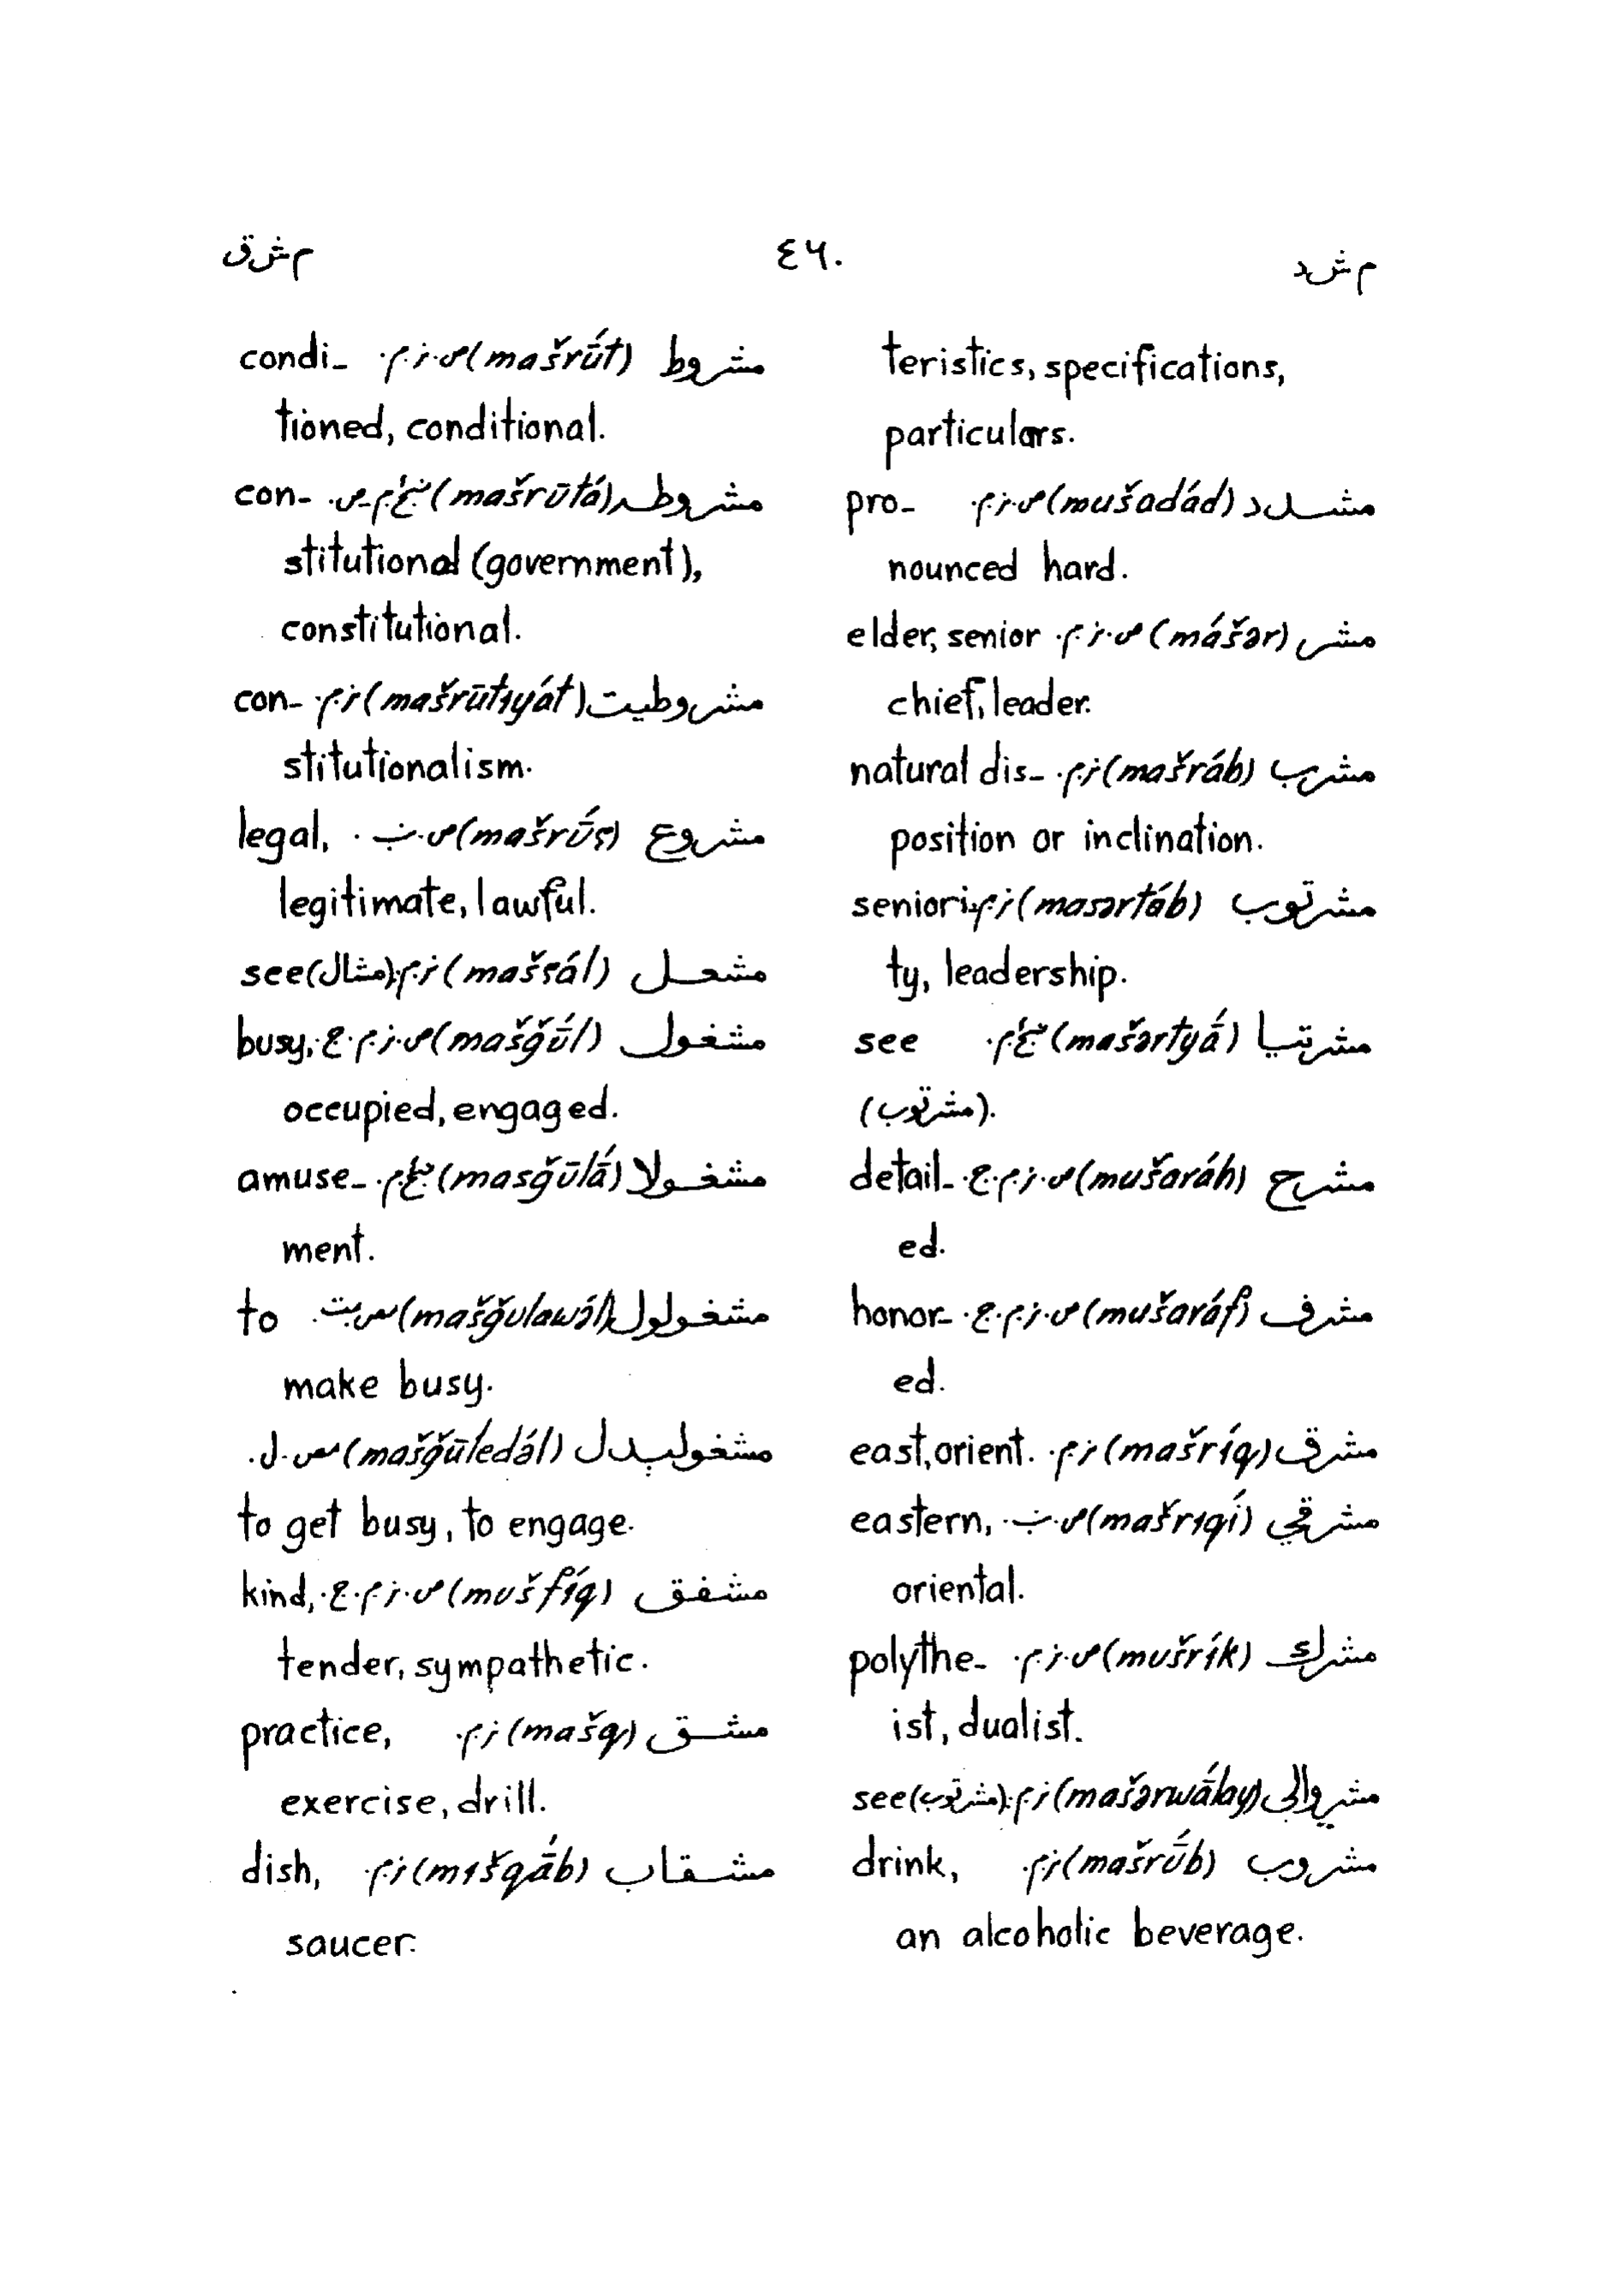 م ش د
٤٦٠
م ش ق
teristics, specifications,
particulars.
مشدد (mušadád) ص.ز.م. pro-
nounced hard.
مشر (mášər) ص.ز.م. elder, senior
chief, leader.
مشرب (mašráb) ز.م. natural dis-
position or inclination.
مشرتوب (masərtób) ز.م. seniori-
ty, leadership.
مشرتيا (mašərtyā́) see
(مشرتوب).
مشرح (mušaráh) ص.ز.م.ج. detail-
ed.
مشرف (mušaráf) ص.ز.م.ج. honor-
ed.
مشرق (mašríq) ز.م. east, orient.
مشرقي (mašrıqí) eastern,
oriental.
مشرك (mušrík) ص.ز.م. polythe-
ist, dualist.
مشروالی (mašərwā́lay) ز.م. see (مشرتوب)
مشروب (mašrū́b) ز.م. drink,
an alcoholic beverage.
مشروط (mašrū́t) ص.ز.م. condi-
tioned, conditional.
مشروطه (mašrūtá) con-
stitutional (government),
constitutional.
مشروطيت (mašrūtıyát) ز.م. con-
stitutionalism.
مشروع (mašrū́ʕ) legal,
legitimate, lawful.
مشعل (mašʕál) ز.م. see (مشال)
مشغول (mašǧū́l) ص.ز.م.ج. busy,
occupied, engaged.
مشغولا (masǧūlā́) amuse-
ment.
مشغولول (mašǧulawə́l) to
make busy.
مشغولېدل (mašǧūledə́l)
to get busy, to engage.
مشفق (mušfíq) ص.ز.م.ج. kind,
tender, sympathetic.
مشق (mašq) ز.م. practice,
exercise, drill.
مشقاب (mıšqā́b) ز.م. dish,
saucer.